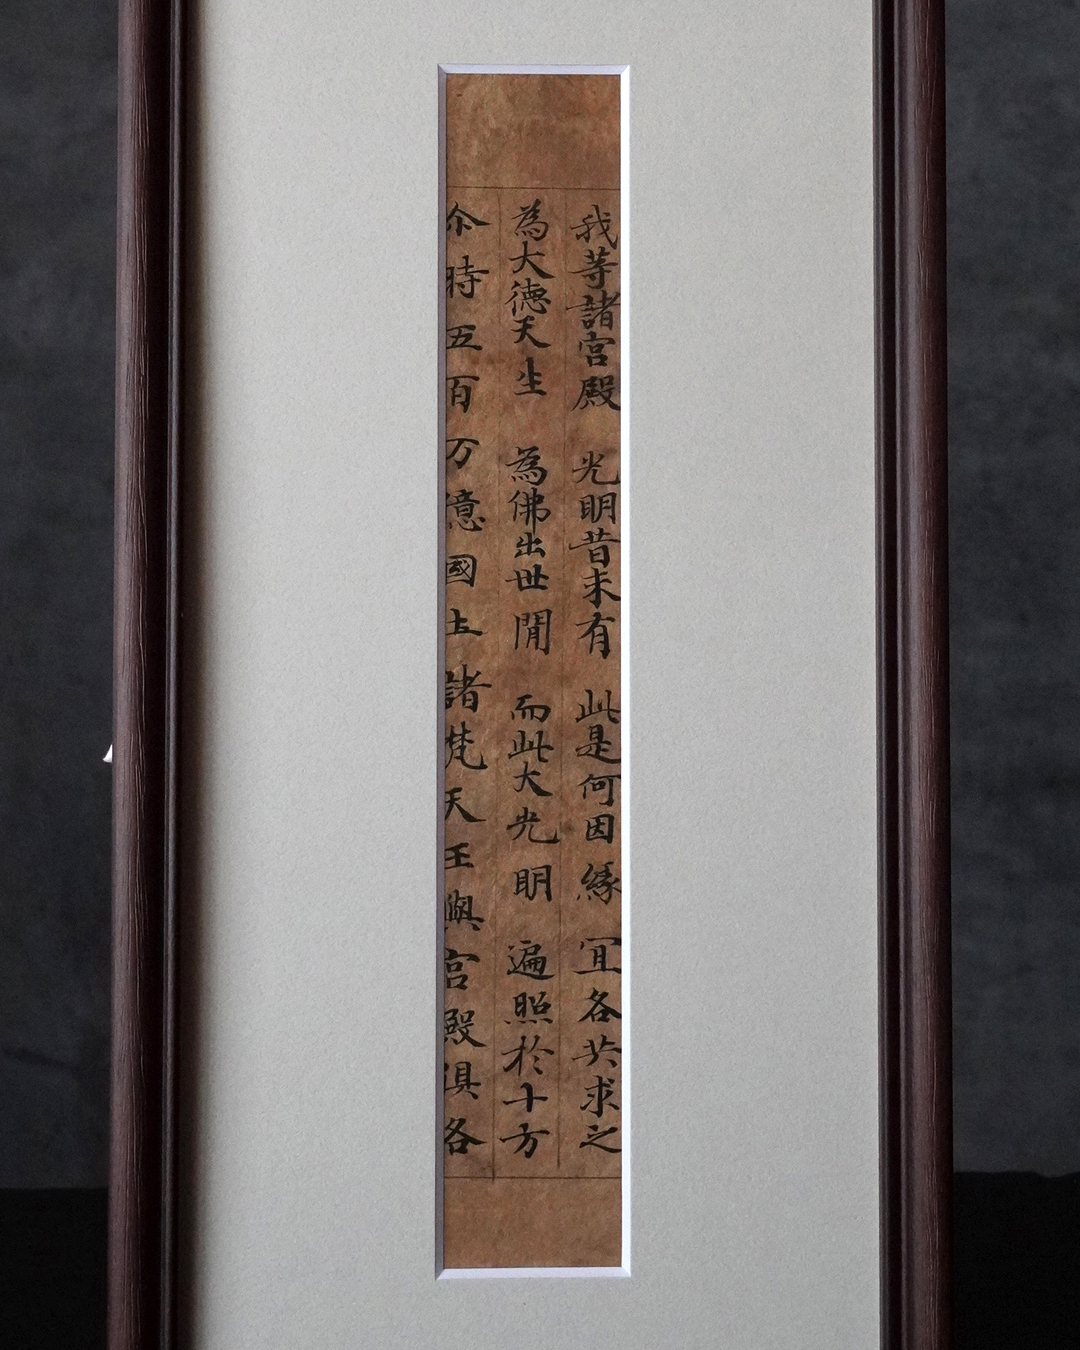 我等諸宮殿 光明昔未有 此是何因緣 冝各共求之
為大德天生 為佛出世間 而此大光明 遍照於十方
尒時五百万億國土諸梵天王與宮殿俱各